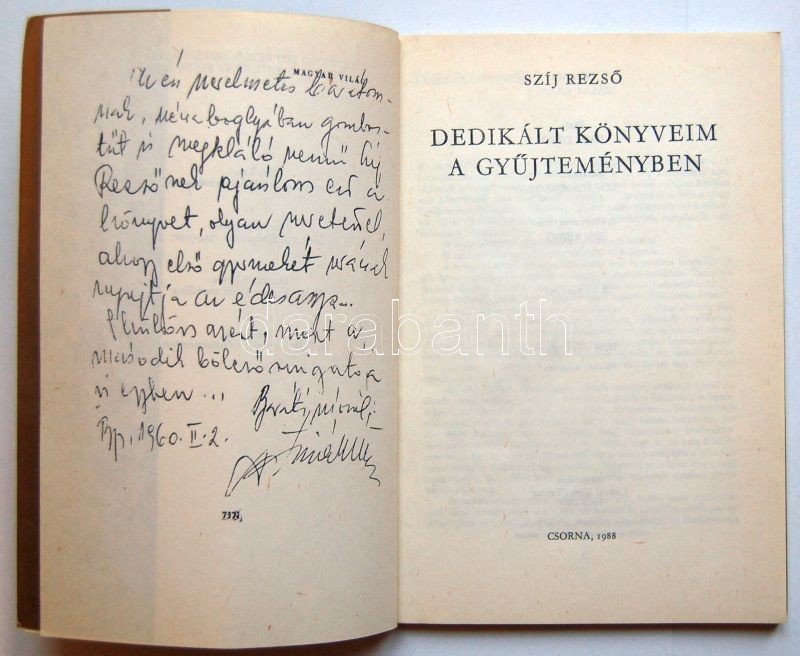 MAGYAR VILÁG
nak, széna boglyában gombos-
tűt is megtaláló szemű Szíj
Rezsőnek ajánlom ezt a
könyvet, olyan szeretettel,
ahogy első gyermekét urának
nyujtja az édesanya...
azért, mert a
második bölcső ringatója
is egyben...
Baráti
Bp. 1960. II. 2.
737
SZÍJ REZSŐ
DEDIKÁLT KÖNYVEIM
A GYŰJTEMÉNYBEN
CSORNA, 1988
darabanth